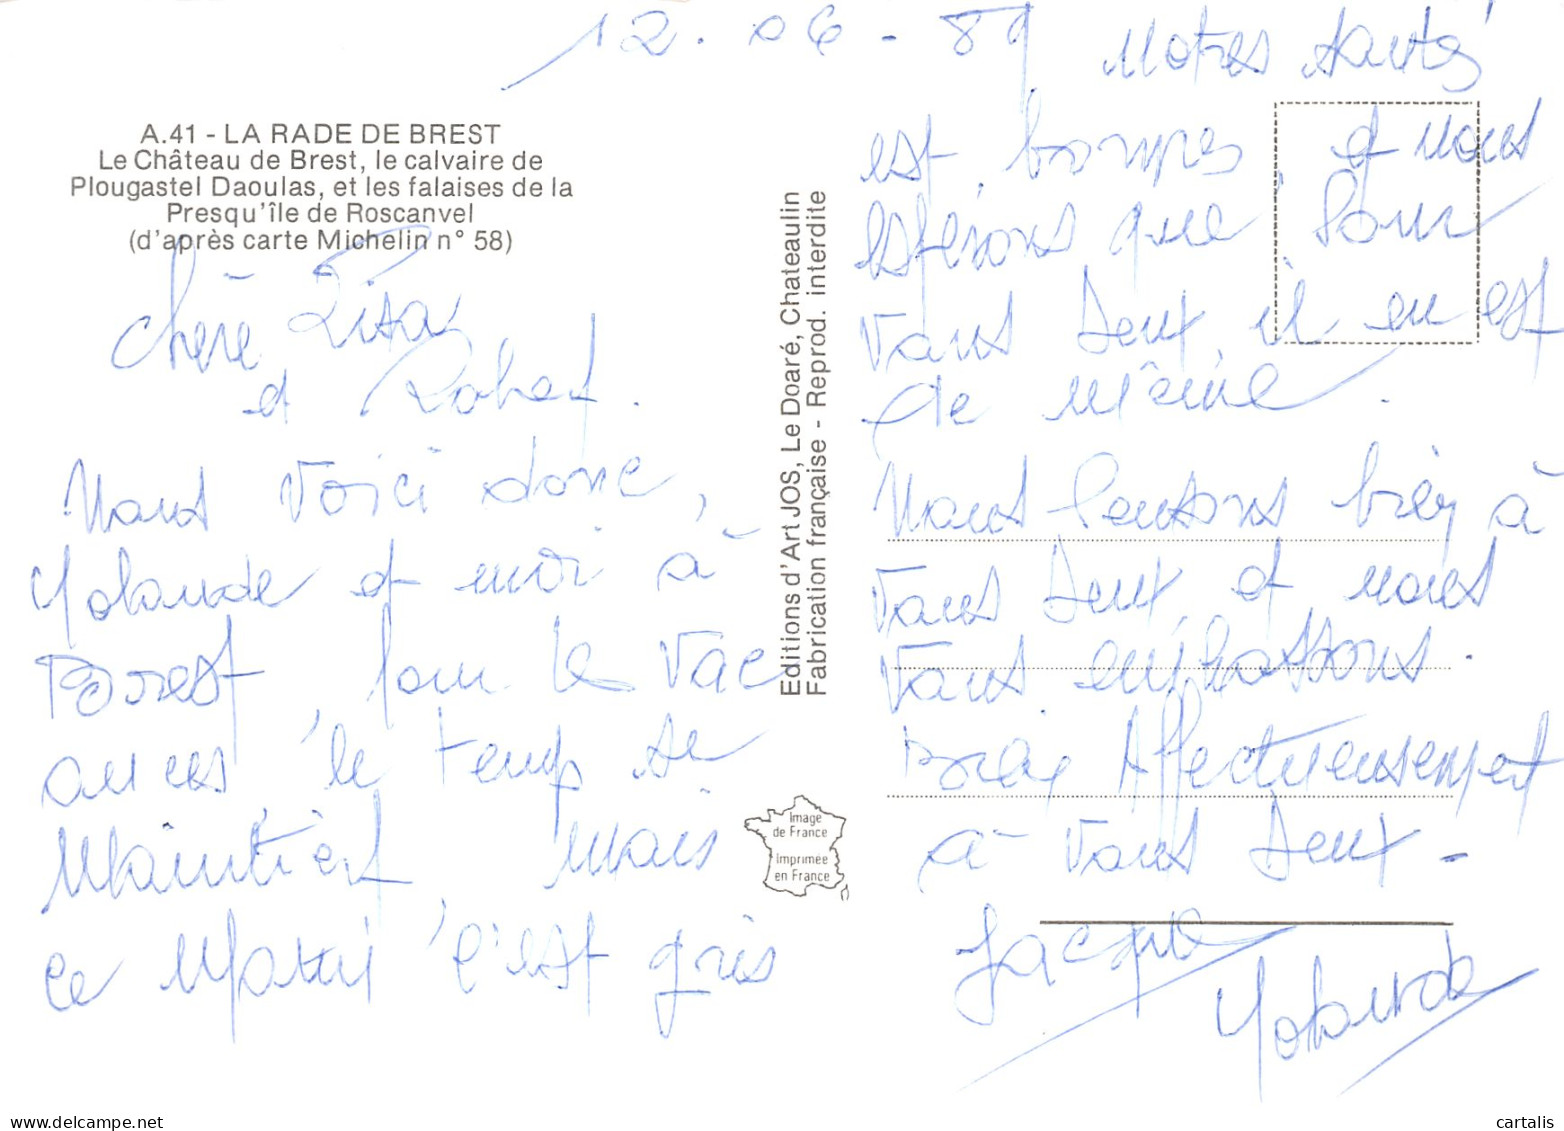 12.06-89
A.41 - LA RADE DE BREST
Le Château de Brest, le calvaire de
Plougastel Daoulas, et les falaises de la
Presqu'île de Roscanvel
(d'après carte Michelin n° 58)
Chère Rita
et Robert.
Nous voici donc,
Yolande et moi à
Brest pour le vac
ances le temps se
Maintient, mais
ce Matin c'est gris
Editions d'Art JOS, Le Doaré, Chateaulin
Fabrication française - Reprod. interdite
Image
de France
Imprimée
en France
Notres santés
est bonnes, et nous
espérons que pour
vous deux, il en est
de même.
Nous pensons bien à
vous deux et nous
vous embrassons.
Bien Affectueusement
à vous deux -
Jacques
Yolande
cartalis
www.delcampe.net